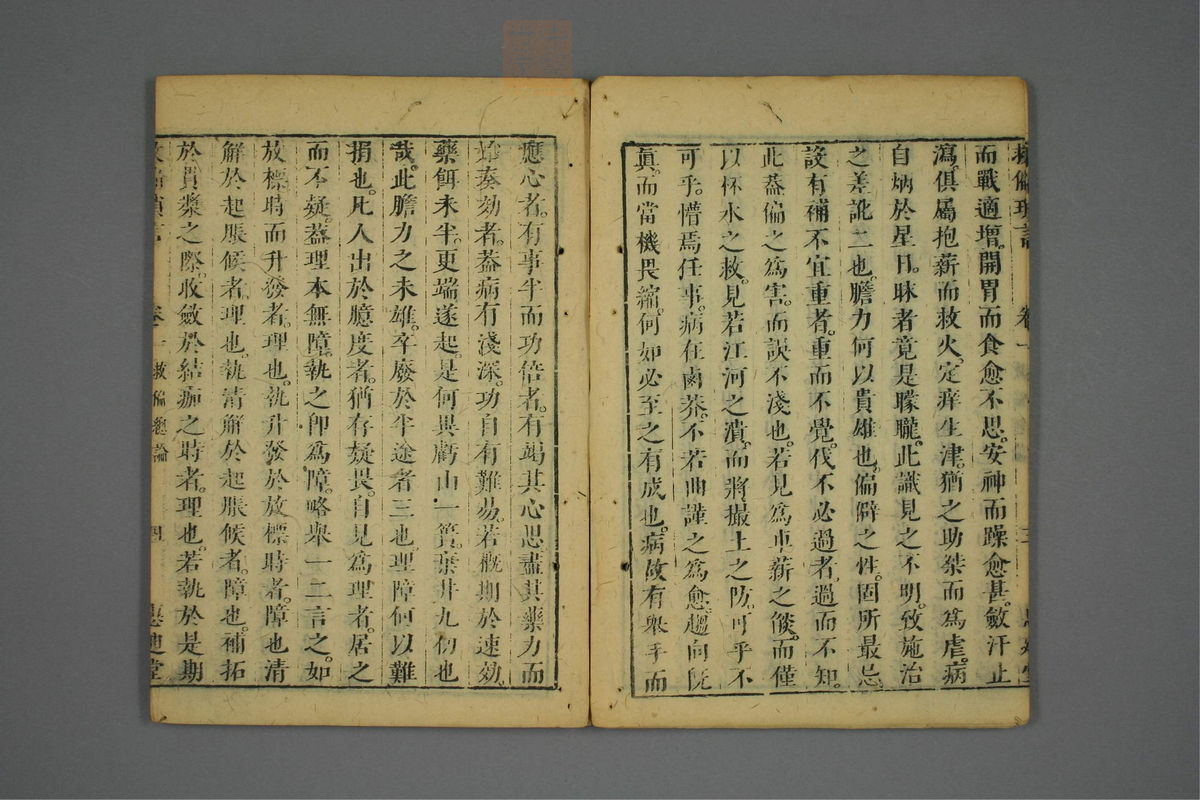 救偏瑣言 卷一
而戰適增。開胃而食愈不思。安神而躁愈甚。斂汗止
瀉。俱屬抱薪而救火。定痒生津。猶之助桀而爲虐。病
自炳於星日。昧者竟是朦朧。此識見之不明。致施治
之差訛二也。膽力何以貴雄也。偏僻之性。固所最忌。
設有補不宜重者。重而不覺。伐不必過者。過而不知。
此葢偏之爲害。而誤不淺也。若見爲車薪之燄。而僅
以杯水之救。見若江河之潰。而將撮土之防。可乎不
可乎。懵焉任事。病在鹵莽。不若曲謹之爲愈。趨向旣
眞。而當機畏縮。何如必至之有成也。病故有舉手而
應心者。有事半而功倍者。有竭其心思盡其藥力而
始奏効者。葢病有淺深。功自有難易。若概期於速効。
藥餌未半。更端遂起。是何異虧山一簣。棄井九仞也
哉。此膽力之未雄。卒廢於半途者三也。理障何以難
捐也。凡人出於臆度者。猶存疑畏。自見爲理者。居之
而不疑。葢理本無障。執之卽爲障。略舉一二言之。如
放標時而升發者。理也。執升發於放標時者。障也淸
解於起脹候者。理也。執清解於起脹候者。障也。補拓
於貫漿之際。收斂於結痂之時者。理也。若執於是期
救偏瑣言 卷一 救偏總論 四 惠迪堂